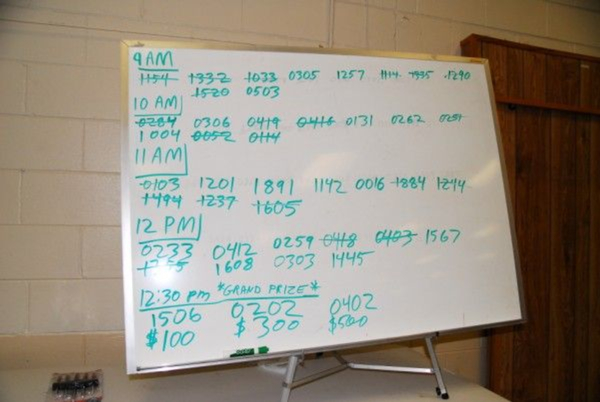 9 AM
1154 1332 1033 0305 1257 1114 1935 1290
1520 0503
10 AM
0284 0306 0419 0416 0131 0262 0251
1004 0052 0114
11 AM
0103 1201 1891 1142 0016 1884 1244
1494 1237 1605
12 PM
0233 0412 0259 0418 0403 1567
1608 0303 1445
12:30 pm *GRAND PRIZE*
1506 0202 0402
$100 $300 $500